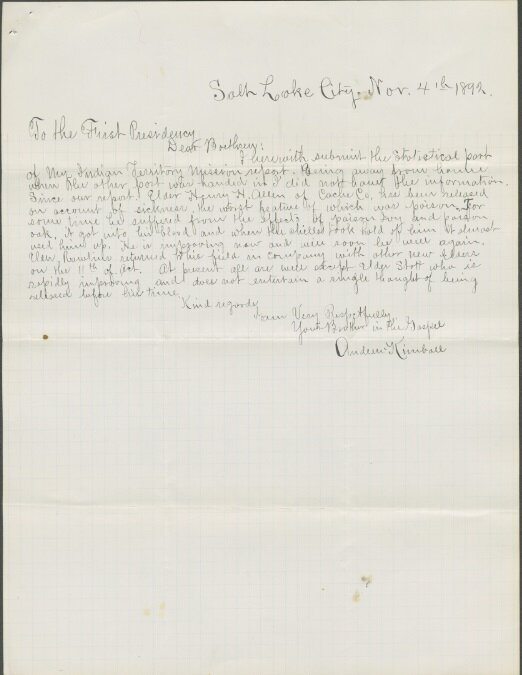 Salt Lake City. Nov. 4th 1892.
To the First Presidency
Dear Brethern:
I herewith submit the Statistical part
of My Indian Territory Mission report. Being away from home
when the other part was handed in I did not have the information.
Since our report Elder Hyrum H. Allen of Cache Co. has been released
on account of sickness, the worst feature of which was poison. For
some time he suffered from the effects of poison Ivy and poison
oak. It got into his blood and when the chills took hold of him it almost
used him up. He is improving now and will soon be well again.
Elder returned to his field in company with other new Elders
on the 11th of Oct. At present all are well except Elder Stott who is
rapidly improving and does not entertain a single thought of being
released before his time.
Kind regards
I am Very Respectfully
Your Brother in the Gospel
Andrew Kimball